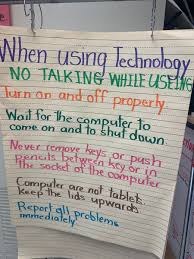 When using Technology
NO TALKING WHILE USEING
Turn on and off properly.
Wait for the computer to
come on and to shut down.
Never remove keys or push
pencils between key or in
the socket of the computer
Computer are not tablets.
Keep the lids upwards
Report all problems
immediately